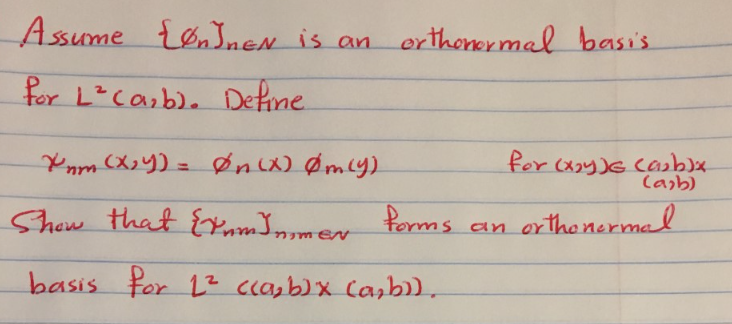 Assume {øn}n∈N is an orthonormal basis
for L²(a,b). Define
χnm (x,y) = øn(x) øm(y) for (x,y)∈ (a,b)×
(a,b)
Show that {χnm}n,m∈N forms an orthonormal
basis for L² ((a,b)× (a,b)).